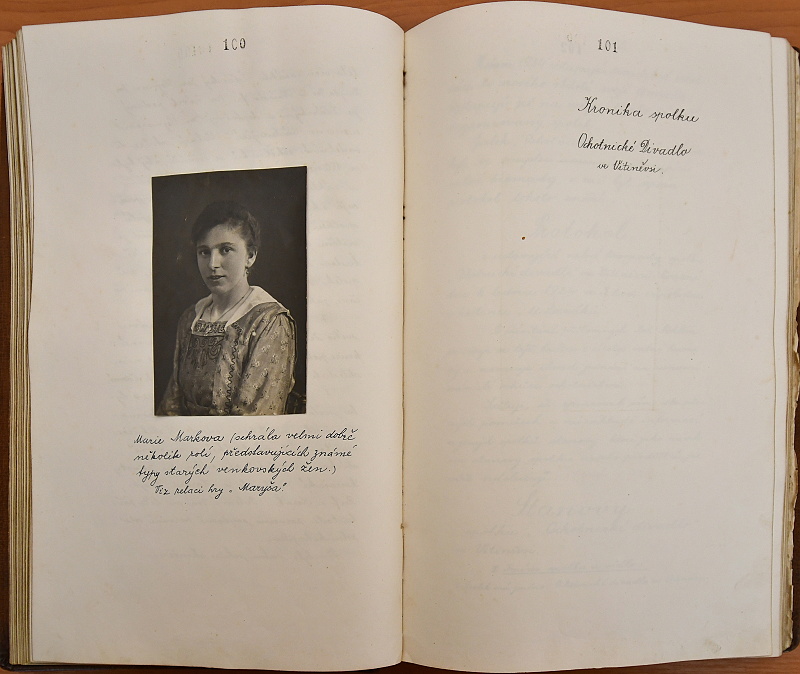 100
Marie Markova (sehrála velmi dobře
několik rolí, představujících známé
typy starých venkovských žen.)
Viz relaci hry „Maryša".
101
Kronika spolku
Ochotnické Divadlo
ve Vitiněvsi.